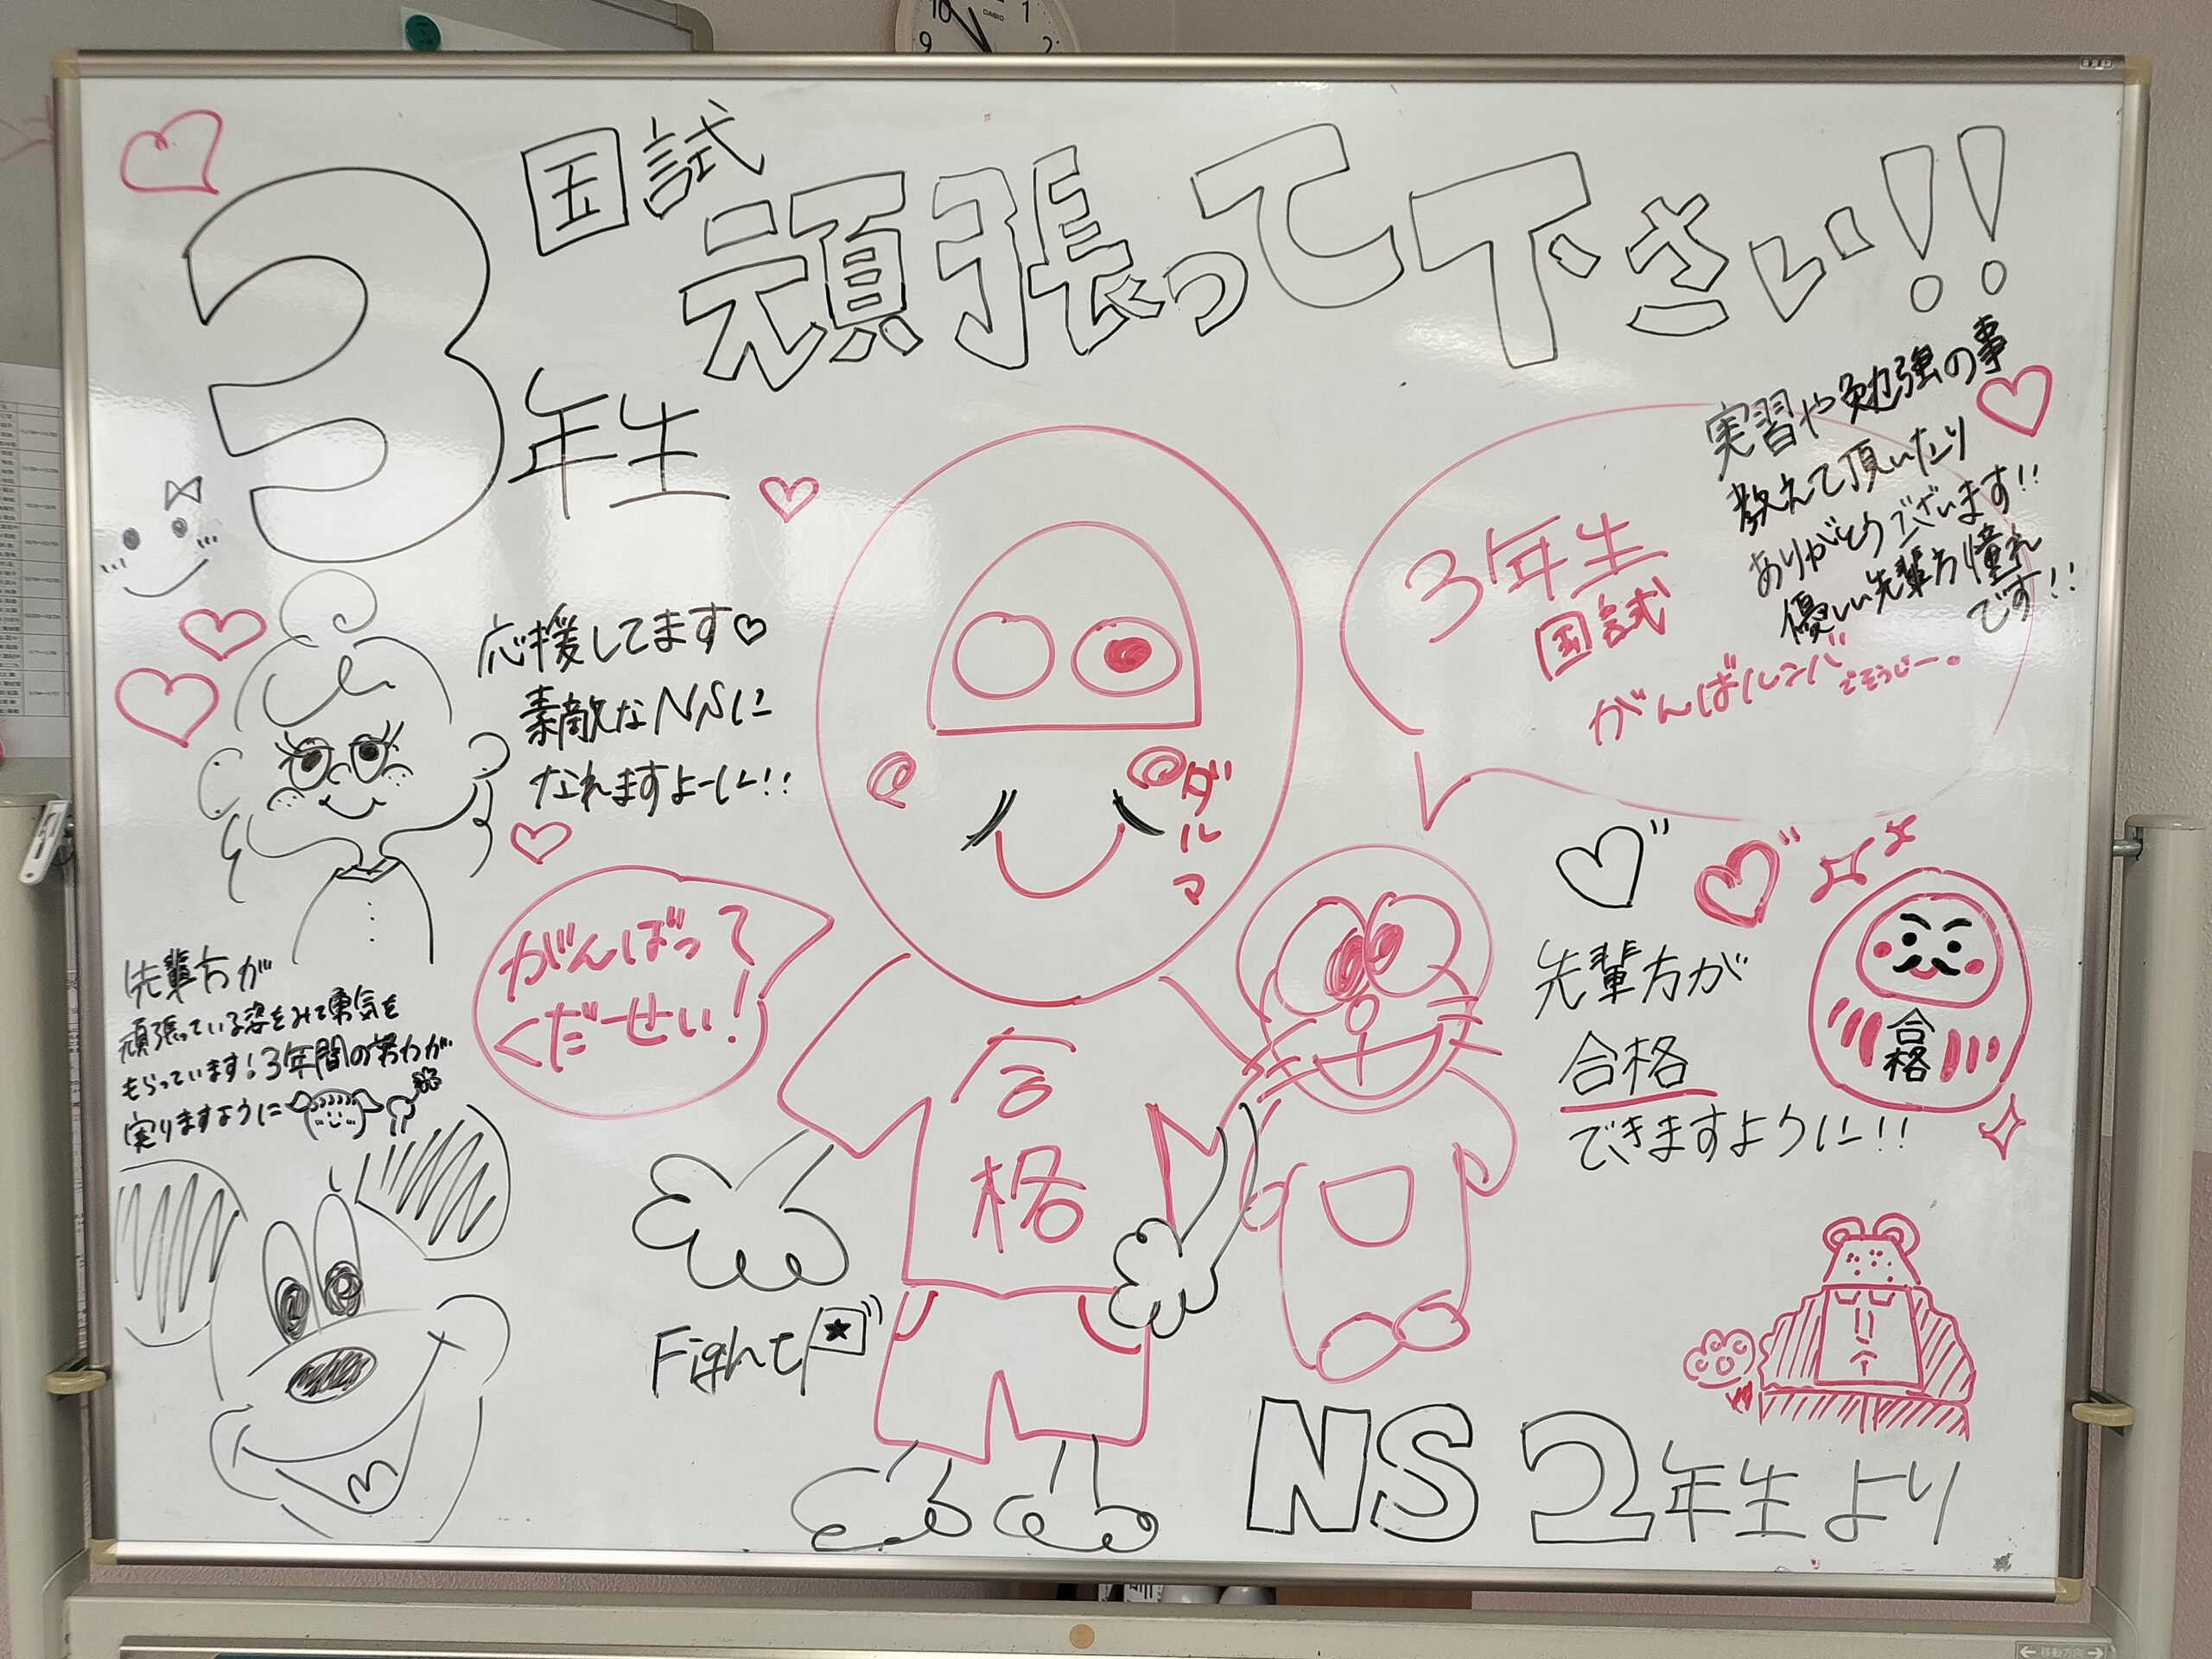 10 1
9 CASIO 2
3年生
国試
頑張って下さい!!
実習や勉強の事
教えて頂いたり
ありがとうございます!!
優しい先輩方憧れ
です!!
3年生
国試
がんばルンバ"
でそうじー。
応援してます♡
素敵なNSに
なれますよーに!!
ダルマ
がんばって
くだーせい!
先輩方が
頑張っている姿をみて勇気を
もらっています!3年間の努力が
実りますように
先輩方が
合格
できますように!!
合格
合格
Fight
NS 2年生より
←移動方向→